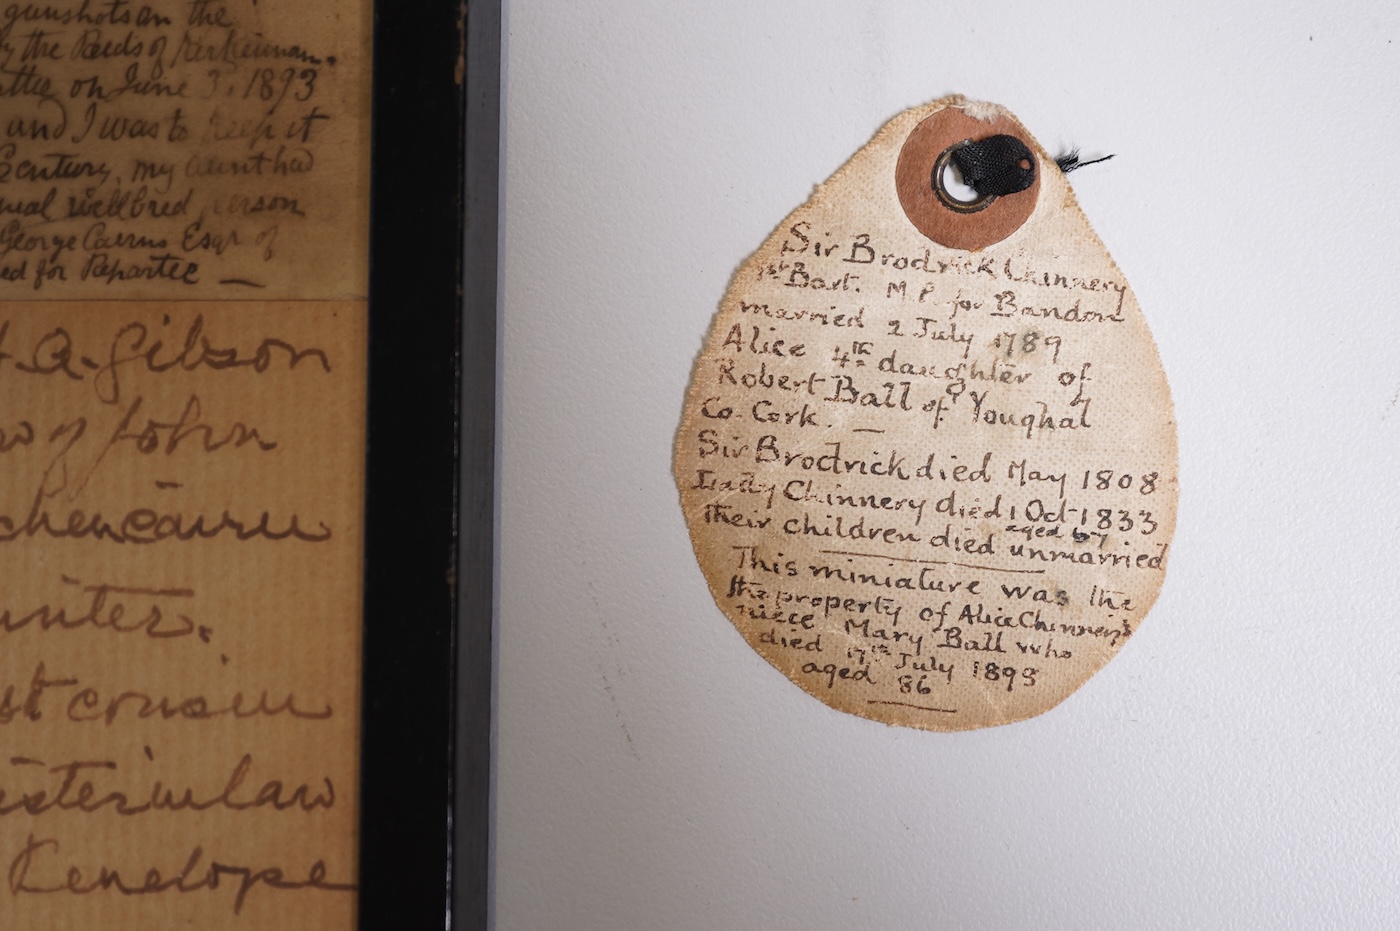 gunshots on the
by the Reids of
on June 3. 1893
and I was to keep it
Century, my aunt had
wellbred person
George Cairns Esqr of
for Repartee —
A. Gibson
of John
cousin
sister in law
Penelope
Sir Brodrick Chinnery
1st Bart. M.P. for Bandon
married 2 July 1789
Alice 4th daughter of
Robert Ball of Youghal
Co. Cork. —
Sir Brodrick died May 1808
Lady Chinnery died 1 Oct 1833
aged 67
Their children died unmarried
This miniature was the
the property of Alice Chinnery's
niece Mary Ball who
died 17th July 1893
aged 86